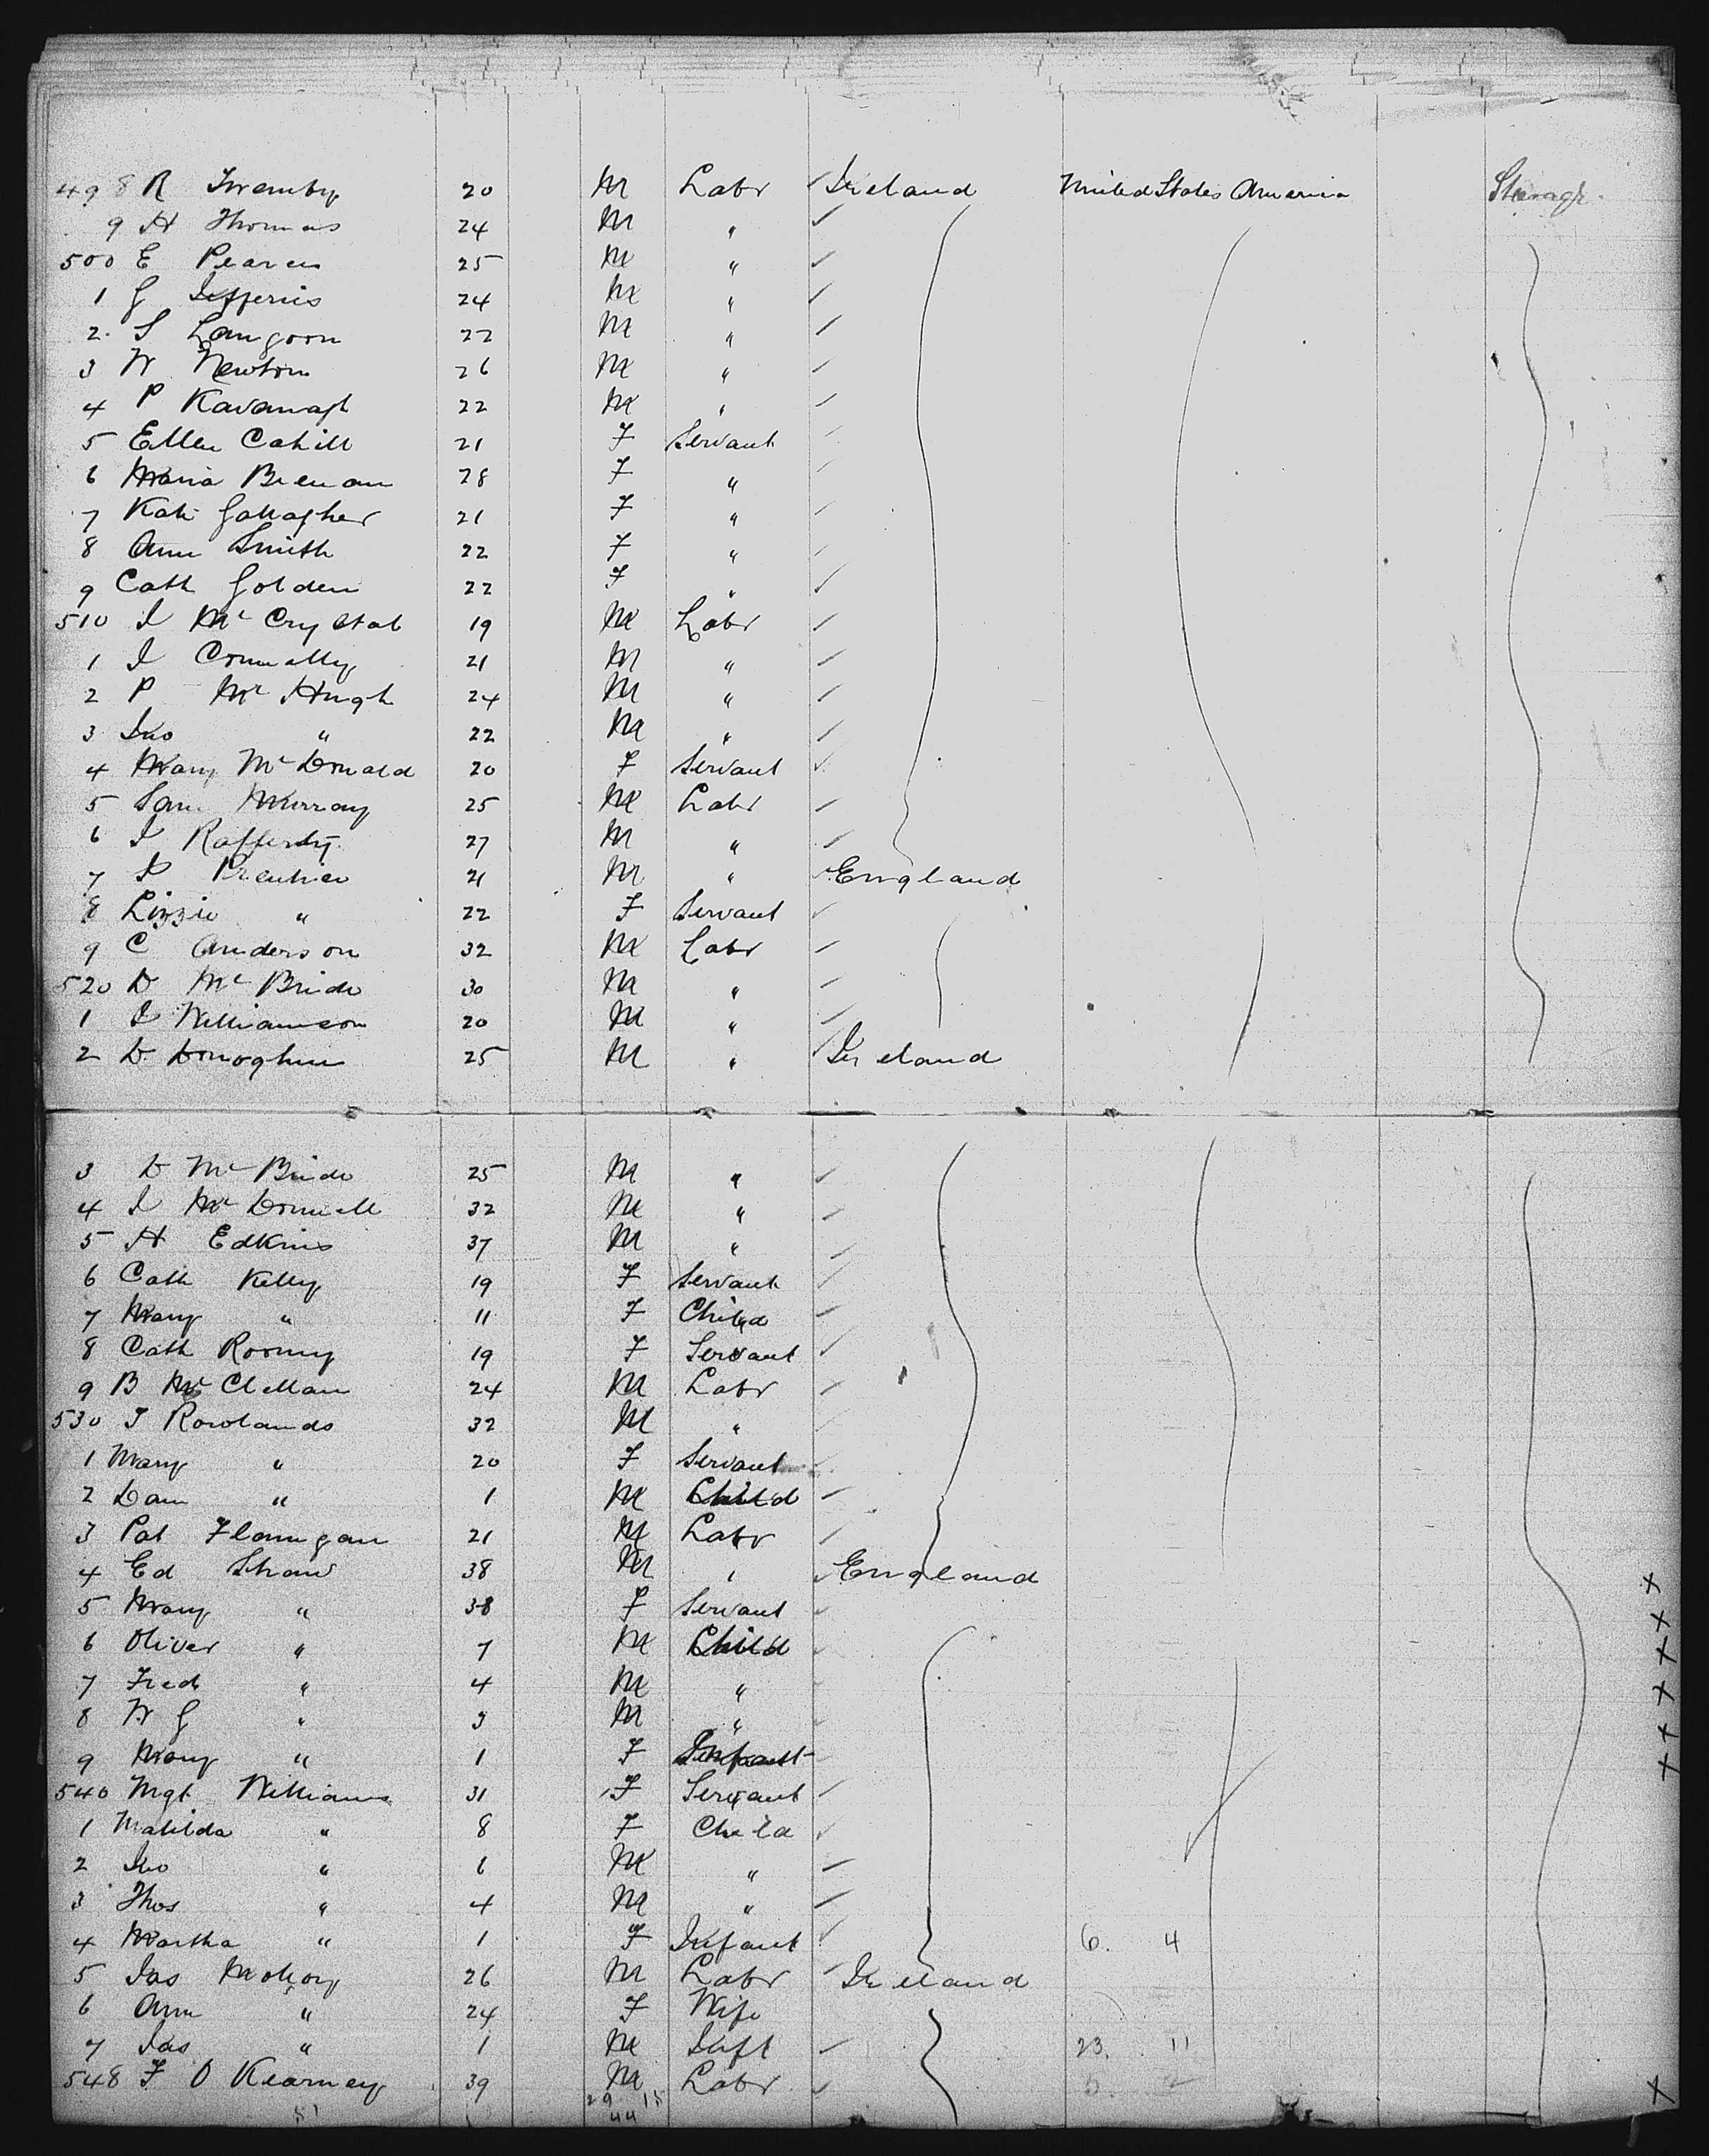 498 R Twemby 20 M Labr Ireland United States America Steerage
9 H Thomas 24 M "
500 E Pearces 25 M "
1 G Jefferis 24 M "
2 S Langoon 22 M "
3 W Newton 26 M "
4 P Kavanagh 22 M "
5 Ellen Cahill 21 F Servant
6 Maria Brenan 28 F "
7 Kate Gallagher 21 F "
8 Ann Smith 22 F "
9 Cath Golden 22 F "
510 J McCrystal 19 M Labr
1 J Connelly 21 M "
2 P McHugh 24 M "
3 Jno " 22 M "
4 Mary McDonald 20 F Servant
5 Sam Murray 25 M Labr
6 J Rafferty 27 M "
7 J 21 M " England
8 Lizzie " 22 F Servant
9 C Anderson 32 M Labr
520 D McBride 30 M "
1 J Williamson 20 M "
2 D Donoghue 25 M " Ireland
3 D McBride 25 M "
4 J McDonnell 32 M "
5 H Edkins 37 M "
6 Cath Kelly 19 F Servant
7 Mary " 11 F Child
8 Cath Rooney 19 F Servant
9 B McClellan 24 M Labr
530 T Rowlands 32 M "
1 Mary " 20 F Servant
2 Dan " 1 M Child
3 Pat Flannigan 21 M Labr
4 Ed Shaw 38 M " England
5 Mary " 38 F Servant
6 Oliver " 7 M Child
7 Fred " 4 M "
8 W G " 3 M "
9 Mary " 1 F Infant
540 Mgt Williams 31 F Servant
1 Matilda " 8 F Child
2 Jno " 6 M "
3 Thos " 4 M "
4 Martha " 1 F Infant 6. 4
5 Jas Mohony 26 M Labr Ireland
6 Ann " 24 F Wife
7 Jas " 1 M Inft 23. 11
548 F O Kearney 39 M Labr 5.
29 15
51 44